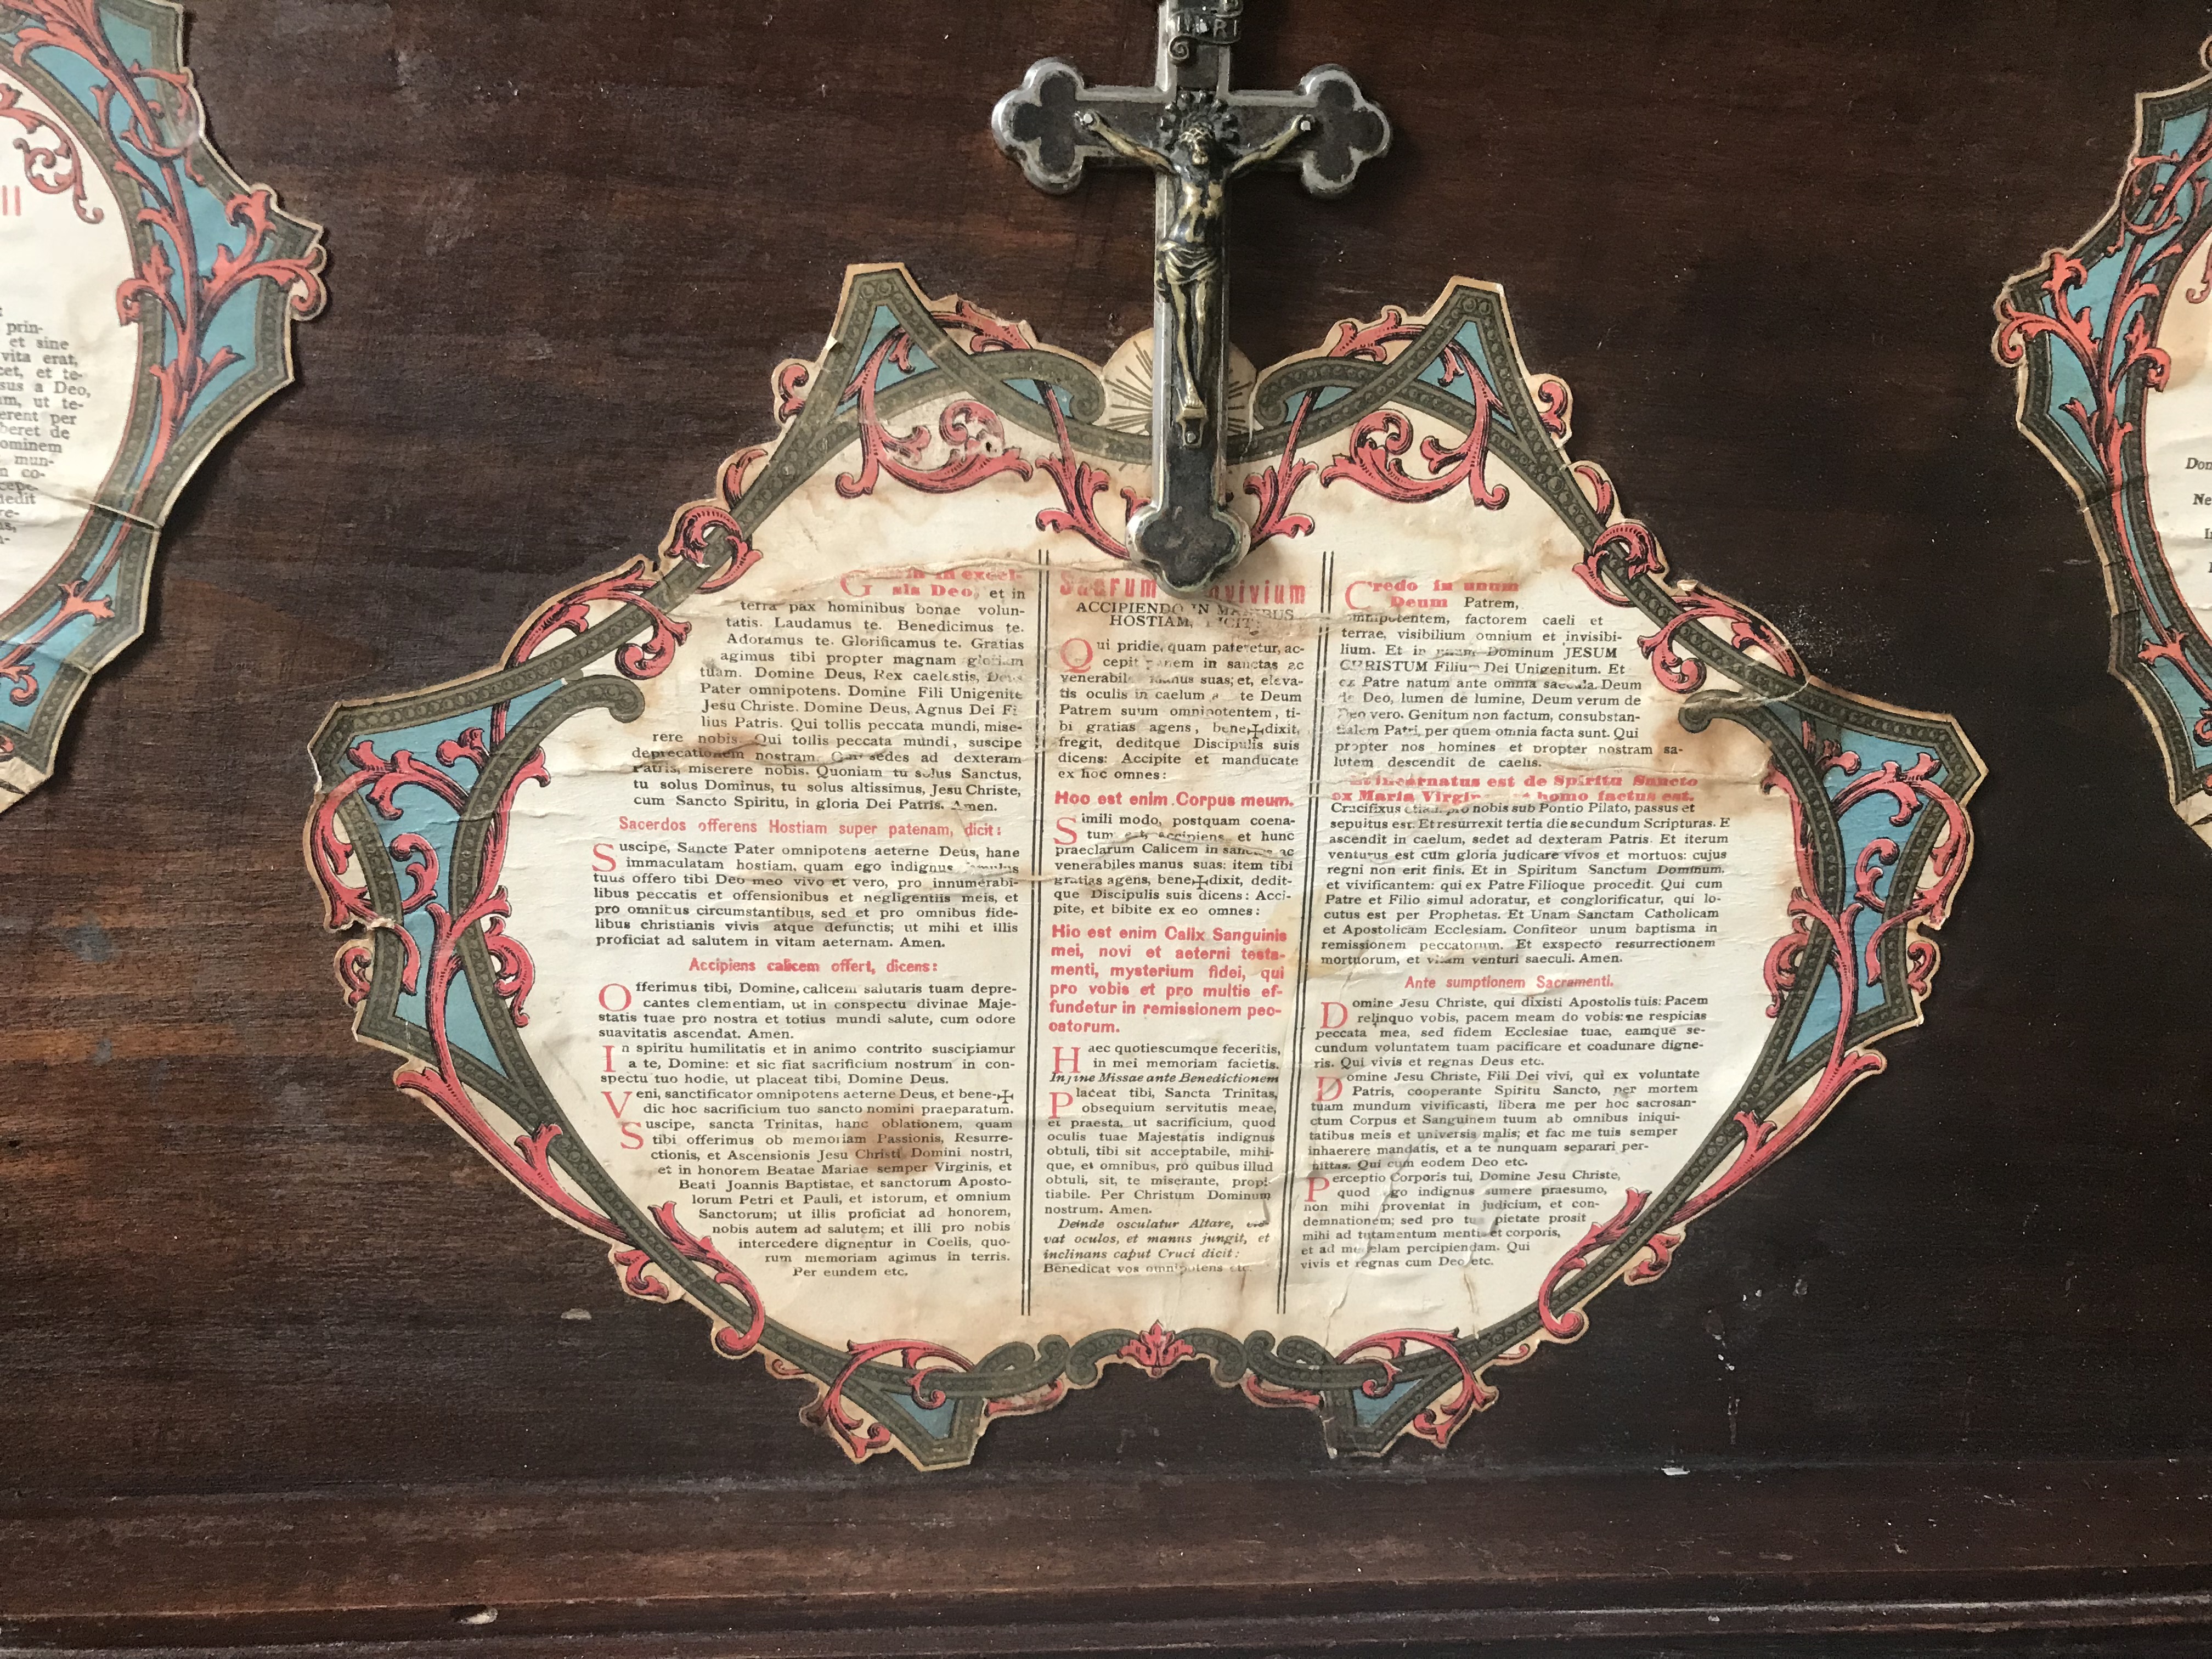 II
prin-
et sine
vita erat,
et te-
sus a Deo,
ut te-
erent per
beret de
ominem
mun-
co-
cepe-
nedit
re-
excel-
sis Deo, et in
terra pax hominibus bonae volun-
tatis. Laudamus te. Benedicimus te.
Adoramus te. Glorificamus te. Gratias
agimus tibi propter magnam gloriam
tuam. Domine Deus, Rex caelestis, Deus
Pater omnipotens. Domine Fili Unigenite
Jesu Christe. Domine Deus, Agnus Dei Fi
lius Patris. Qui tollis peccata mundi, mise-
rere nobis. Qui tollis peccata mundi, suscipe
deprecationem nostram. Qui sedes ad dexteram
Patris, miserere nobis. Quoniam tu solus Sanctus,
tu solus Dominus, tu solus altissimus, Jesu Christe,
cum Sancto Spiritu, in gloria Dei Patris. Amen.
Sacerdos offerens Hostiam super patenam, dicit:
Suscipe, Sancte Pater omnipotens aeterne Deus, hane
immaculatam hostiam, quam ego indignus famulus
tuus offero tibi Deo meo vivo et vero, pro innumerabi-
libus peccatis et offensionibus et negligentiis meis, et
pro omnibus circumstantibus, sed et pro omnibus fide-
libus christianis vivis atque defunctis; ut mihi et illis
proficiat ad salutem in vitam aeternam. Amen.
Accipiens calicem offert, dicens:
Offerimus tibi, Domine, calicem salutaris tuam depre-
cantes clementiam, ut in conspectu divinae Maje-
statis tuae pro nostra et totius mundi salute, cum odore
suavitatis ascendat. Amen.
In spiritu humilitatis et in animo contrito suscipiamur
a te, Domine: et sic fiat sacrificium nostrum in con-
spectu tuo hodie, ut placeat tibi, Domine Deus.
Veni, sanctificator omnipotens aeterne Deus, et bene-✠
dic hoc sacrificium tuo sancto nomini praeparatum.
Suscipe, sancta Trinitas, hanc oblationem, quam
tibi offerimus ob memoriam Passionis, Resurre-
ctionis, et Ascensionis Jesu Christi Domini nostri,
et in honorem Beatae Mariae semper Virginis, et
Beati Joannis Baptistae, et sanctorum Aposto-
lorum Petri et Pauli, et istorum, et omnium
Sanctorum; ut illis proficiat ad honorem,
nobis autem ad salutem; et illi pro nobis
intercedere dignentur in Coelis, quo-
rum memoriam agimus in terris.
Per eundem etc.
Sacrum vivium
ACCIPIENDO IN MANIBUS
HOSTIAM, DICIT:
Qui pridie, quam pateretur, ac-
cepit panem in sanctas ac
venerabiles manus suas; et, eleva-
tis oculis in caelum te Deum
Patrem suum omnipotentem, ti-
bi gratias agens, bene✠dixit,
fregit, deditque Discipulis suis
dicens: Accipite et manducate
ex hoc omnes:
Hoc est enim Corpus meum.
Simili modo, postquam coena-
tum est, accipiens et hunc
praeclarum Calicem in sanctas ac
venerabiles manus suas: item tibi
gratias agens, bene✠dixit, dedit-
que Discipulis suis dicens: Acci-
pite, et bibite ex eo omnes:
Hic est enim Calix Sanguinis
mei, novi et aeterni testa-
menti, mysterium fidei, qui
pro vobis et pro multis ef-
fundetur in remissionem pec-
catorum.
Haec quotiescumque feceritis,
in mei memoriam facietis.
In fine Missae ante Benedictionem
Placeat tibi, Sancta Trinitas,
obsequium servitutis meae,
et praesta, ut sacrificium, quod
oculis tuae Majestatis indignus
obtuli, tibi sit acceptabile, mihi-
que, et omnibus, pro quibus illud
obtuli, sit, te miserante, propi
tiabile. Per Christum Dominum
nostrum. Amen.
Deinde osculatur Altare, ele
vat oculos, et manus jungit, et
inclinans caput Cruci dicit:
Benedicat vos omnipotens etc.
Credo in unum
Deum Patrem,
omnipotentem, factorem caeli et
terrae, visibilium omnium et invisibi-
lium. Et in unum Dominum JESUM
CHRISTUM Filium Dei Unigenitum. Et
ex Patre natum ante omnia saecula. Deum
de Deo, lumen de lumine, Deum verum de
Deo vero. Genitum non factum, consubstan-
tialem Patri, per quem omnia facta sunt. Qui
propter nos homines et propter nostram sa-
lutem descendit de caelis.
Et incarnatus est de Spiritu Sancto
ex Maria Virgine et homo factus est.
Crucifixus etiam pro nobis sub Pontio Pilato, passus et
sepultus est. Et resurrexit tertia die secundum Scripturas. E
ascendit in caelum, sedet ad dexteram Patris. Et iterum
venturus est cum gloria judicare vivos et mortuos: cujus
regni non erit finis. Et in Spiritum Sanctum Dominum,
et vivificantem: qui ex Patre Filioque procedit. Qui cum
Patre et Filio simul adoratur, et conglorificatur, qui lo-
cutus est per Prophetas. Et Unam Sanctam Catholicam
et Apostolicam Ecclesiam. Confiteor unum baptisma in
remissionem peccatorum. Et exspecto resurrectionem
mortuorum, et vitam venturi saeculi. Amen.
Ante sumptionem Sacramenti.
Domine Jesu Christe, qui dixisti Apostolis tuis: Pacem
relinquo vobis, pacem meam do vobis: ne respicias
peccata mea, sed fidem Ecclesiae tuae, eamque se-
cundum voluntatem tuam pacificare et coadunare digne-
ris. Qui vivis et regnas Deus etc.
Domine Jesu Christe, Fili Dei vivi, qui ex voluntate
Patris, cooperante Spiritu Sancto, per mortem
tuam mundum vivificasti, libera me per hoc sacrosan-
ctum Corpus et Sanguinem tuum ab omnibus iniqui-
tatibus meis et universis malis; et fac me tuis semper
inhaerere mandatis, et a te nunquam separari per-
mittas. Qui cum eodem Deo etc.
Perceptio Corporis tui, Domine Jesu Christe,
quod ego indignus sumere praesumo,
non mihi proveniat in judicium, et con-
demnationem; sed pro tua pietate prosit
mihi ad tutamentum mentis et corporis,
et ad medelam percipiendam. Qui
vivis et regnas cum Deo etc.
Ne